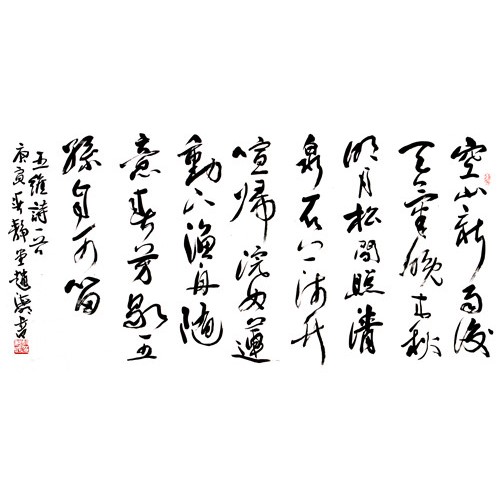 空山新雨後
天氣晚來秋
明月松間照清
泉石上流竹
喧歸浣女蓮
動下漁舟隨
意春芳歇王
孫自可留
王維詩一首
庚寅春靜堂趙